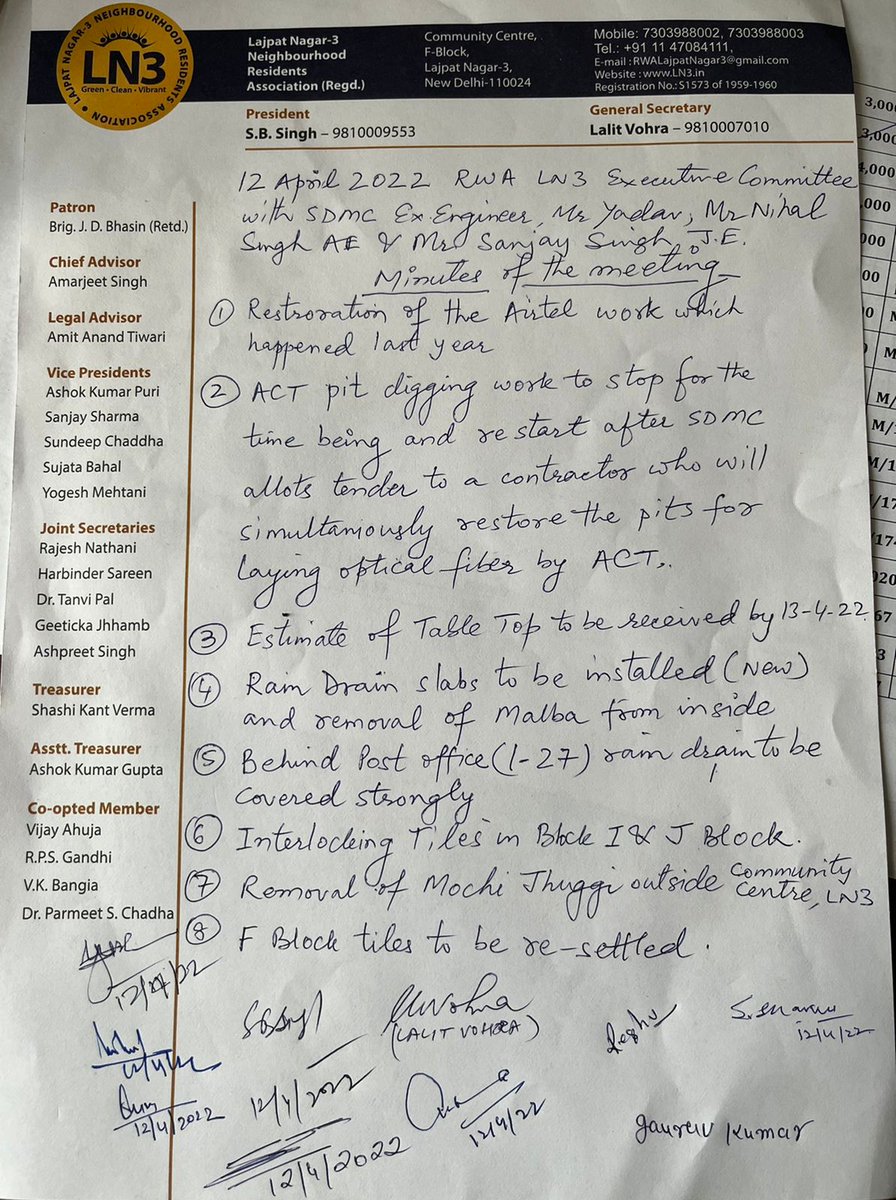 LAJPAT NAGAR-3 NEIGHBOURHOOD RESIDENTS ASSOCIATION
LN3
Green • Clean • Vibrant
Lajpat Nagar-3
Neighbourhood
Residents
Association (Regd.)
Community Centre,
F-Block,
Lajpat Nagar-3,
New Delhi-110024
Mobile: 7303988002, 7303988003
Tel.: +91 11 47084111,
E-mail : RWALajpatNagar3@gmail.com
Website : www.LN3.in
Registration No.: S1573 of 1959-1960
President
S.B. Singh – 9810009553
General Secretary
Lalit Vohra – 9810007010
Patron
Brig. J. D. Bhasin (Retd.)
Chief Advisor
Amarjeet Singh
Legal Advisor
Amit Anand Tiwari
Vice Presidents
Ashok Kumar Puri
Sanjay Sharma
Sundeep Chaddha
Sujata Bahal
Yogesh Mehtani
Joint Secretaries
Rajesh Nathani
Harbinder Sareen
Dr. Tanvi Pal
Geeticka Jhhamb
Ashpreet Singh
Treasurer
Shashi Kant Verma
Asstt. Treasurer
Ashok Kumar Gupta
Co-opted Member
Vijay Ahuja
R.P.S. Gandhi
V.K. Bangia
Dr. Parmeet S. Chadha
12 April 2022 RWA LN3 Executive Committee
with SDMC Ex.Engineer, Mr Yadav, Mr Nihal
Singh AE & Mr Sanjay Singh J.E.
Minutes of the meeting
① Restroration of the Airtel work which
happened last year
② ACT pit digging work to stop for the
time being and restart after SDMC
allots tender to a contractor who will
simultamously restore the pits for
laying optical fiber by ACT..
③ Estimate of Table Top to be received by 13-4-22.
④ Rain Drain slabs to be installed (New)
and removal of Malba from inside
⑤ Behind Post office (I-27) rain drain to be
covered strongly
⑥ Interlocking Tiles in Block I & J Block.
⑦ Removal of Mochi Jhuggi outside Community
Centre, LN3
⑧ F Block tiles to be re-settled.
12/4/22
(LALIT VOHRA)
S. Sharma
12/4/22
12/4/22
12/4/2022
12/4/2022
12/4/22
12/4/2022
gaurav Kumar
3,000
3,000
,000
000
000
00
M/
M/1
M/1
/17
17-
020
67